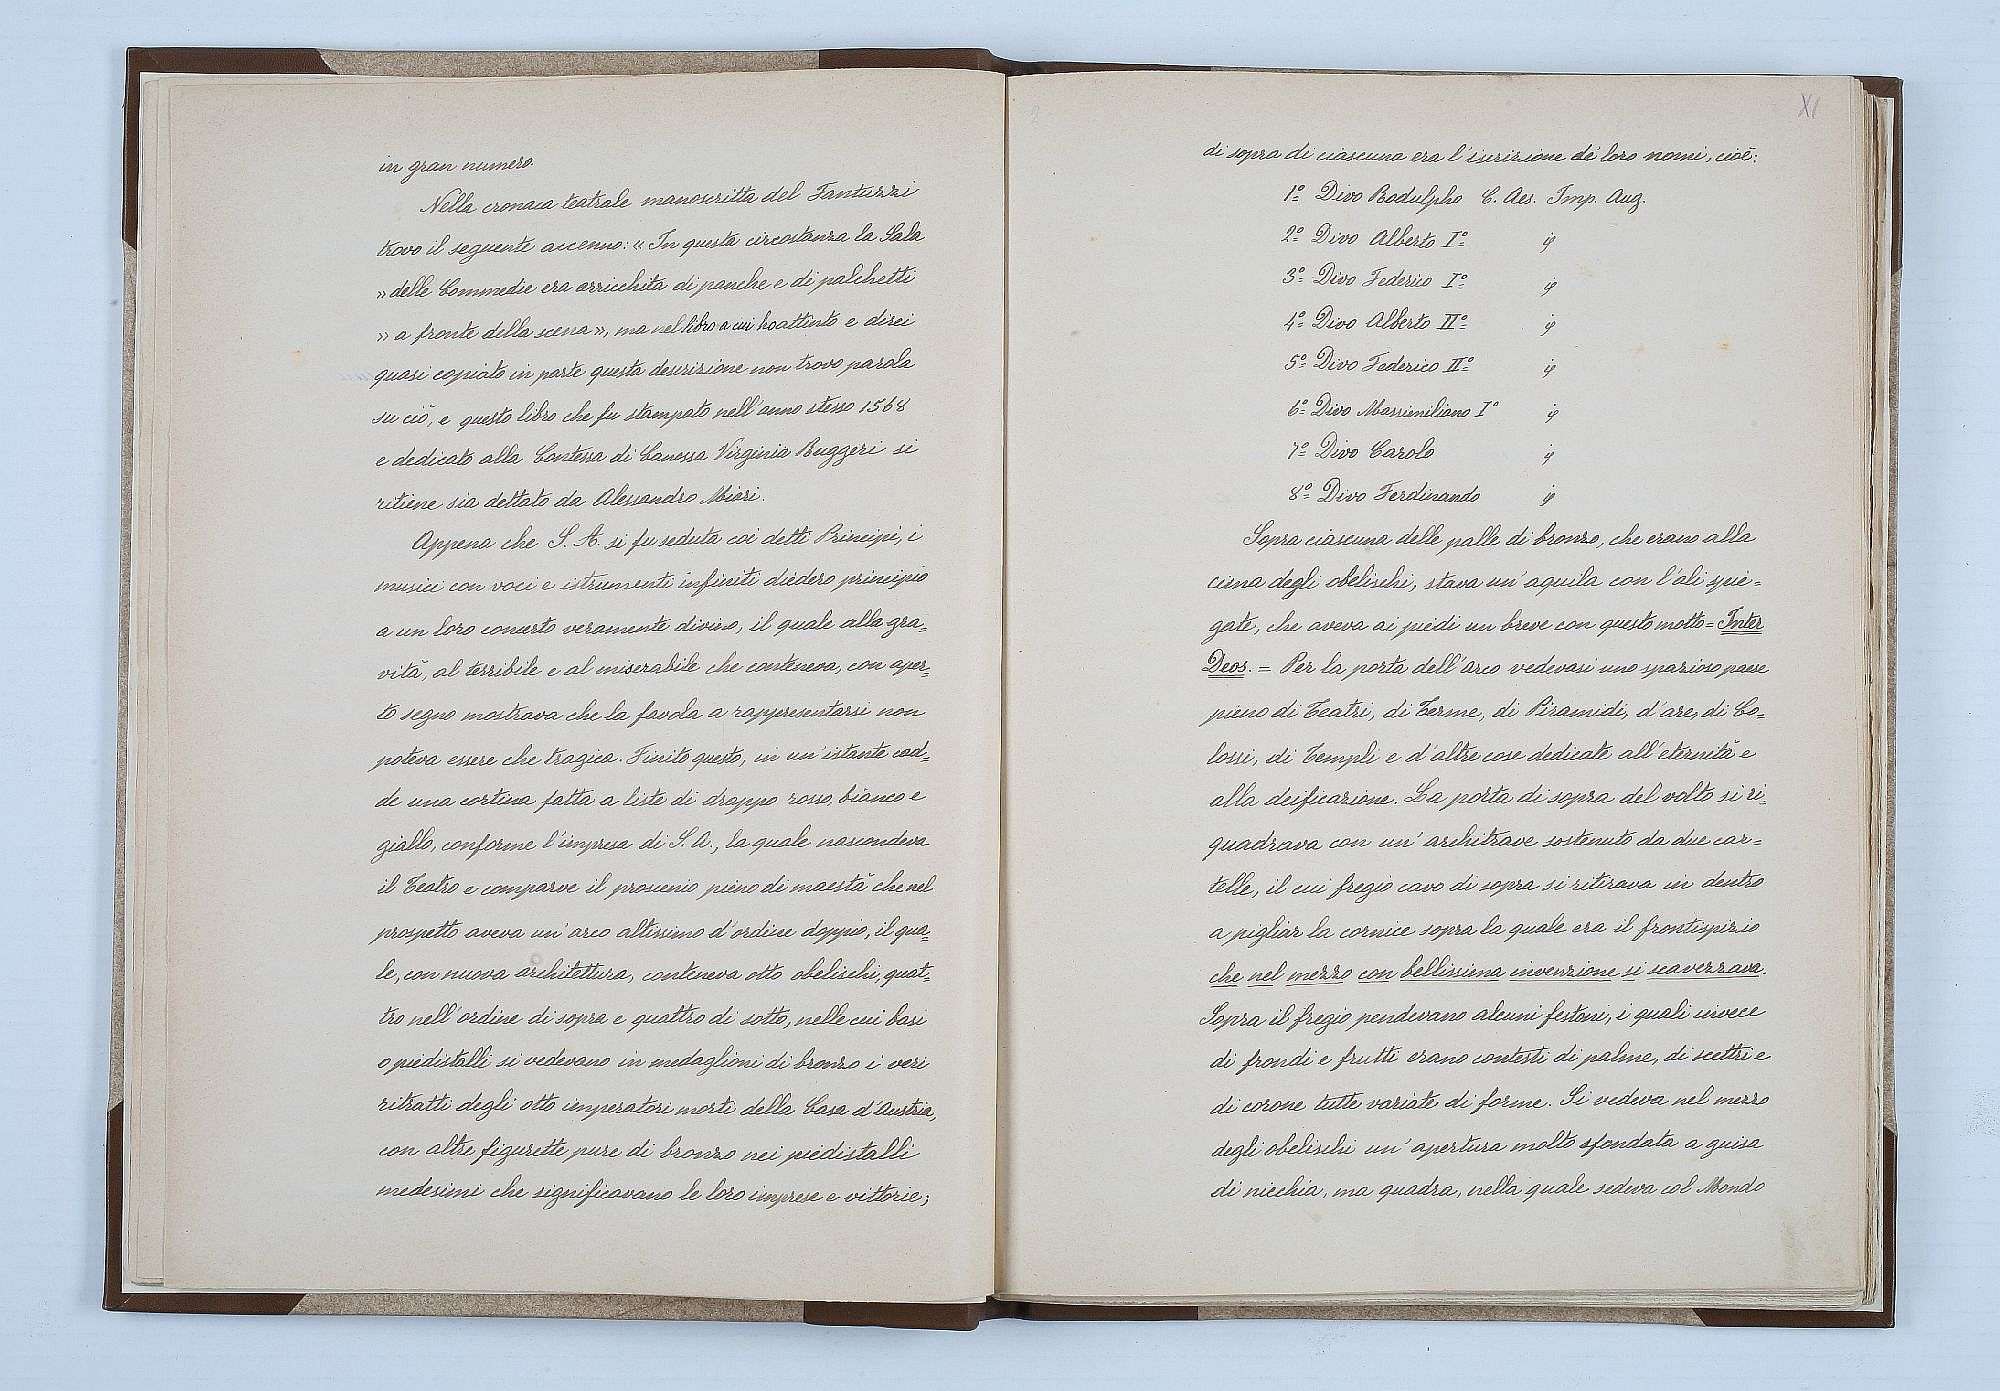 in gran numero.
Nella cronaca teatrale manoscritta del Fantuzzi
trovo il seguente accenno: « In questa circostanza la Sala
» delle Commedie era arricchita di panche e di palchetti
» a fronte della scena », ma nel libro a cui ho attinto e direi
quasi copiato in parte questa descrizione non trovo parola
su ciò, e questo libro che fu stampato nell'anno stesso 1568
e dedicato alla Contessa di Canossa Virginia Ruggeri si
ritiene sia dettato da Alessandro Miari.
Appena che S. A. si fu seduta coi detti Principi, i
musici con voci e istrumenti infiniti diedero principio
a un loro concerto veramente divino, il quale alla gra-
vità, al terribile e al miserabile che conteneva, con aper-
to segno mostrava che la favola a rappresentarsi non
poteva essere che tragica. Finito questo, in un'istante cad-
de una cortina fatta a liste di drappo rosso, bianco e
giallo, conforme l'impresa di S. A., la quale nascondeva
il Teatro e comparve il proscenio pieno di maestà che nel
prospetto aveva un'arco altissimo d'ordine doppio, il qua-
le, con nuova architettura, conteneva otto obelischi, quat-
tro nell'ordine di sopra e quattro di sotto, nelle cui basi
o piedistalli si vedevano in medaglioni di bronzo i veri
ritratti degli otto imperatori morti della Casa d'Austria,
con altre figurette pure di bronzo nei piedistalli
medesimi che significavano le loro imprese e vittorie;
XI
di sopra di ciascuna era l'iscrizione de' loro nomi, cioè:
1º Divo Rodulpho C. Aes. Imp. Aug.
2º Divo Alberto Iº id
3º Divo Federico Iº id
4º Divo Alberto IIº id
5º Divo Federico IIº id
6º Divo Massimiliano Iº id
7º Divo Carolo id
8º Divo Ferdinando id
Sopra ciascuna delle palle di bronzo, che erano alla
cima degli obelischi, stava un'aquila con l'ali spie-
gate, che aveva ai piedi un breve con questo motto = Inter
Deos. = Per la porta dell'arco vedevasi uno spazioso paese
pieno di Teatri, di Terme, di Piramidi, d'are, di Co-
lossi, di Templi e d'altre cose dedicate all'eternità e
alla deificazione. La porta di sopra del volto si ri-
quadrava con un'architrave sostenuto da due car-
telle, il cui fregio cavo di sopra si ritirava in dentro
a pigliar la cornice sopra la quale era il frontispizio
che nel mezzo con bellissima invenzione si scavezzava.
Sopra il fregio pendevano alcuni festoni, i quali invece
di frondi e frutti erano contesti di palme, di scettri e
di corone tutte variate di forme. Si vedeva nel mezzo
degli obelischi un'apertura molto sfondata a guisa
di nicchia, ma quadra, nella quale sedeva col Mondo